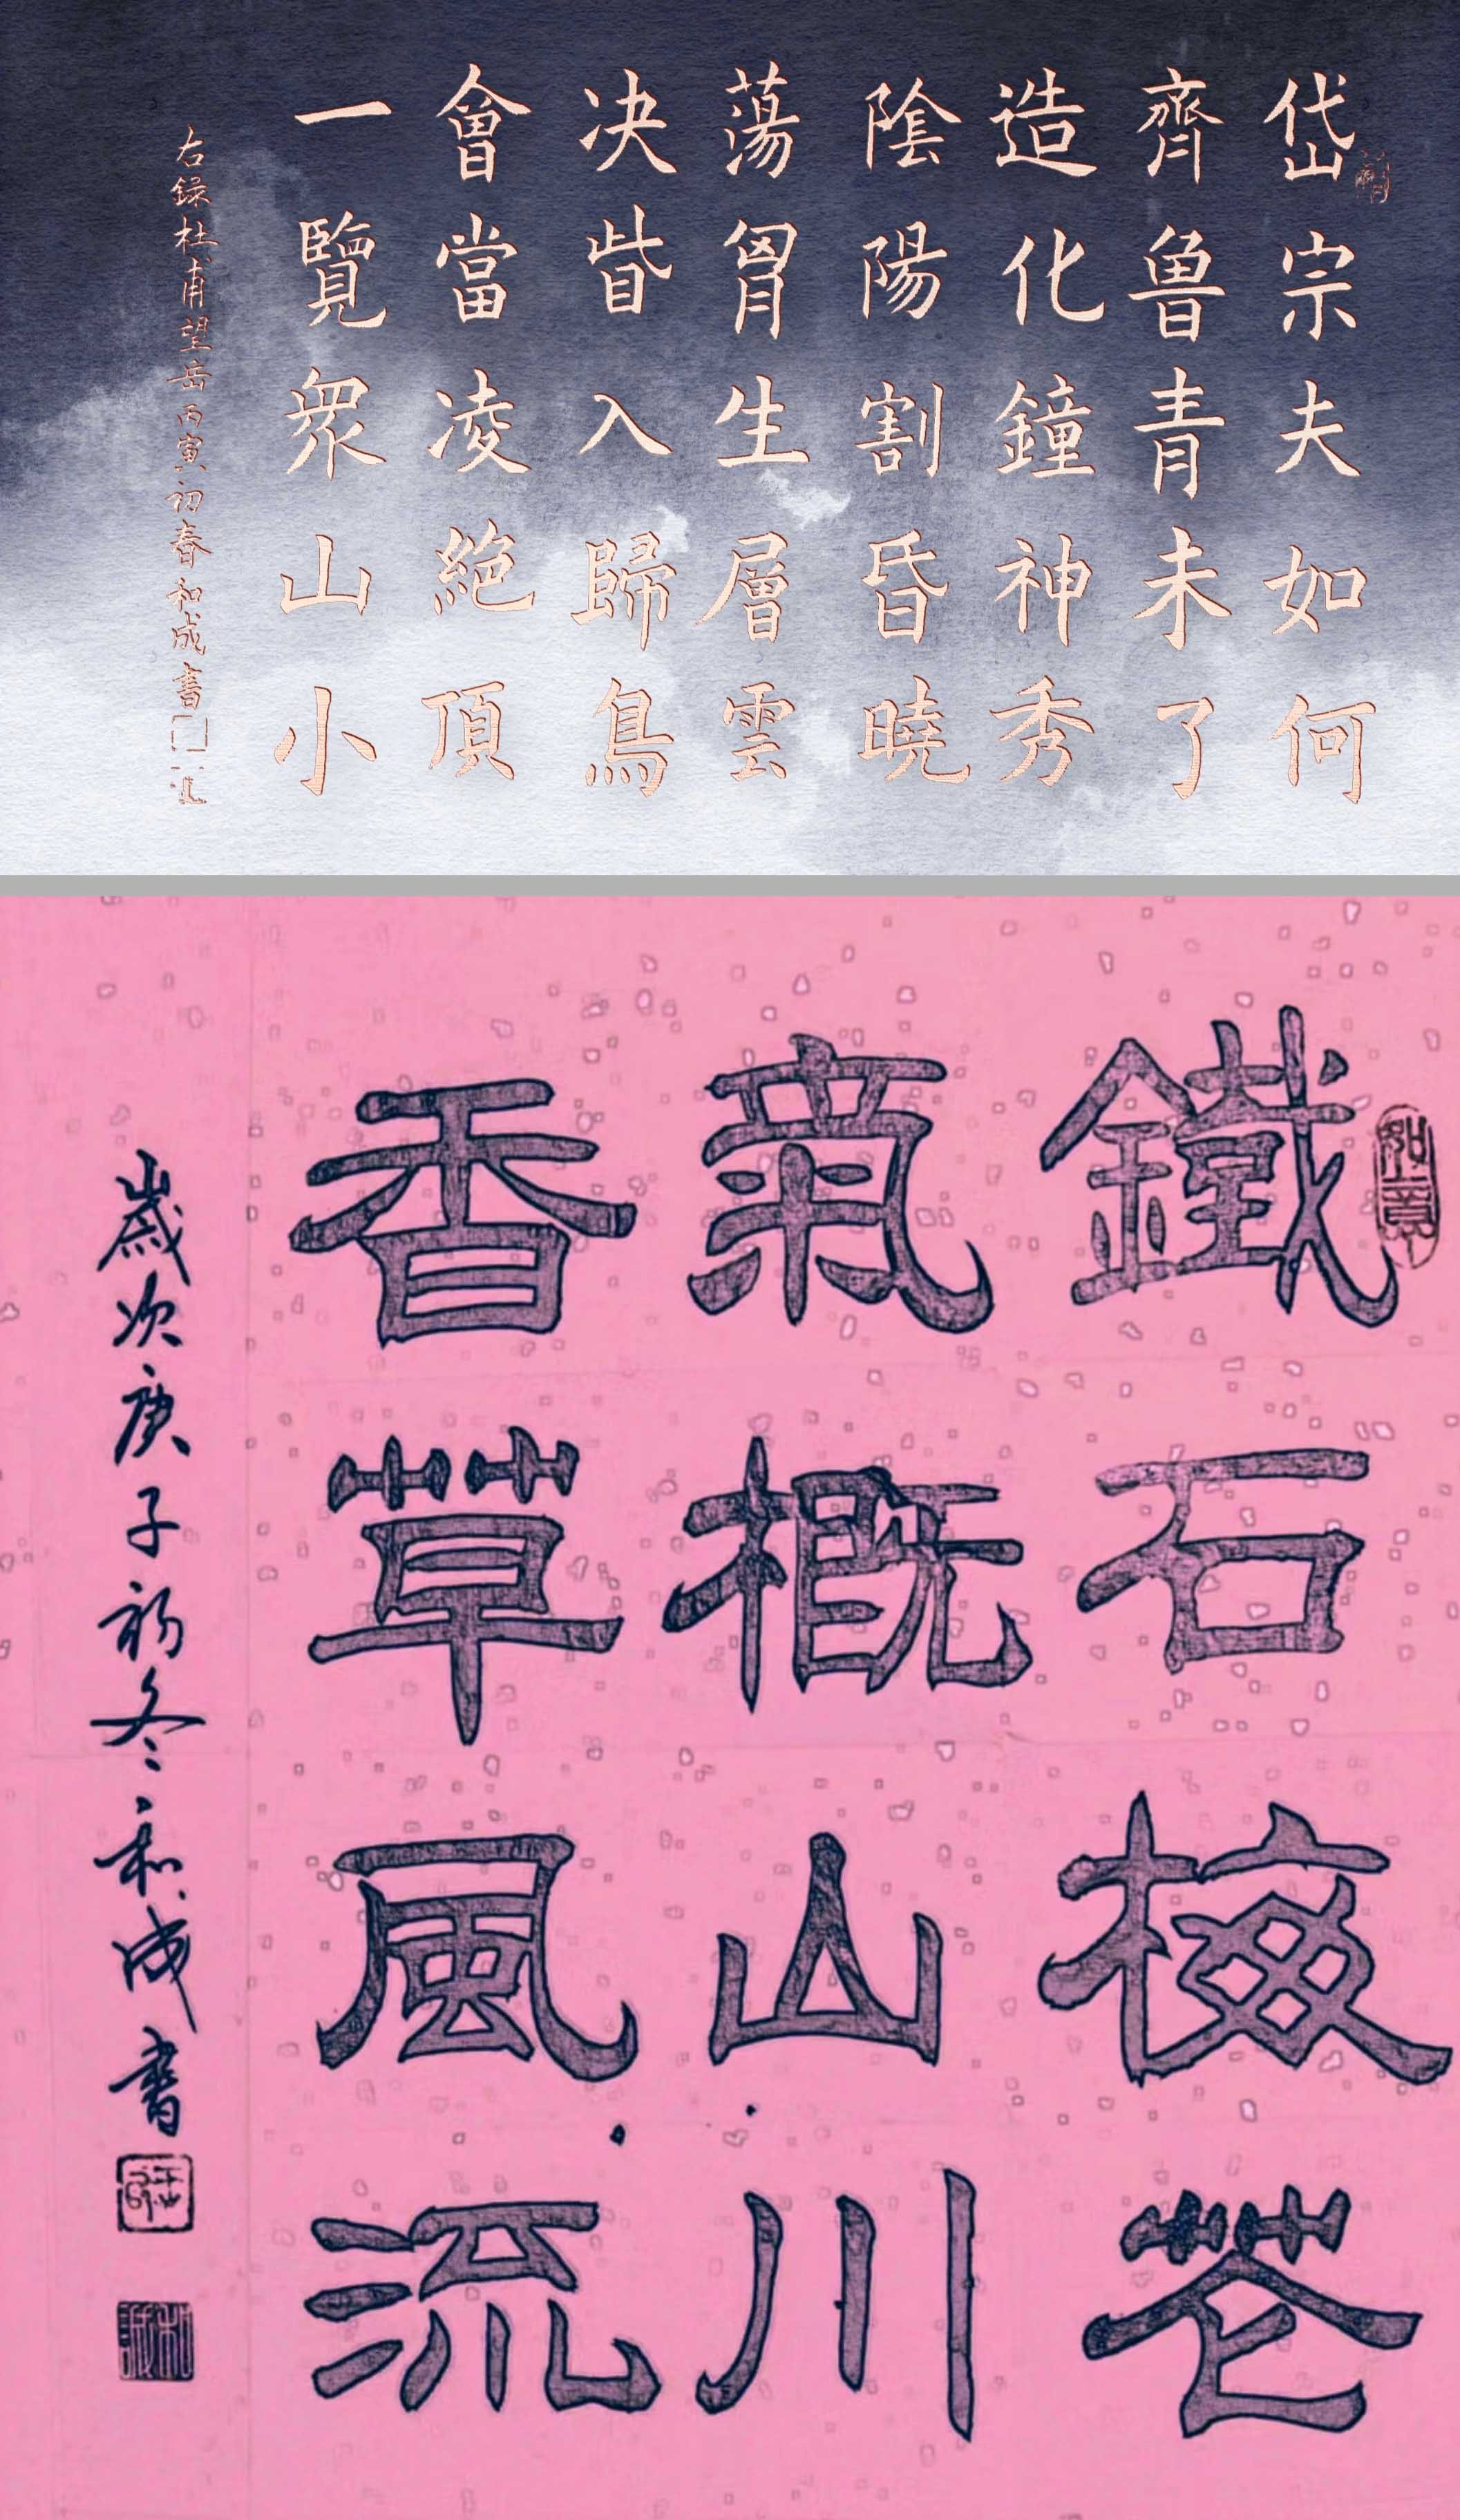 岱宗夫如何
齊魯青未了
造化鐘神秀
陰陽割昏曉
蕩胷生層雲
决眥入歸鳥
會當凌絕頂
一覽衆山小
右録杜甫望岳丙寅初春和成書
鐵石梅花
氣概山川
香草風流
歲次庚子初冬和成書